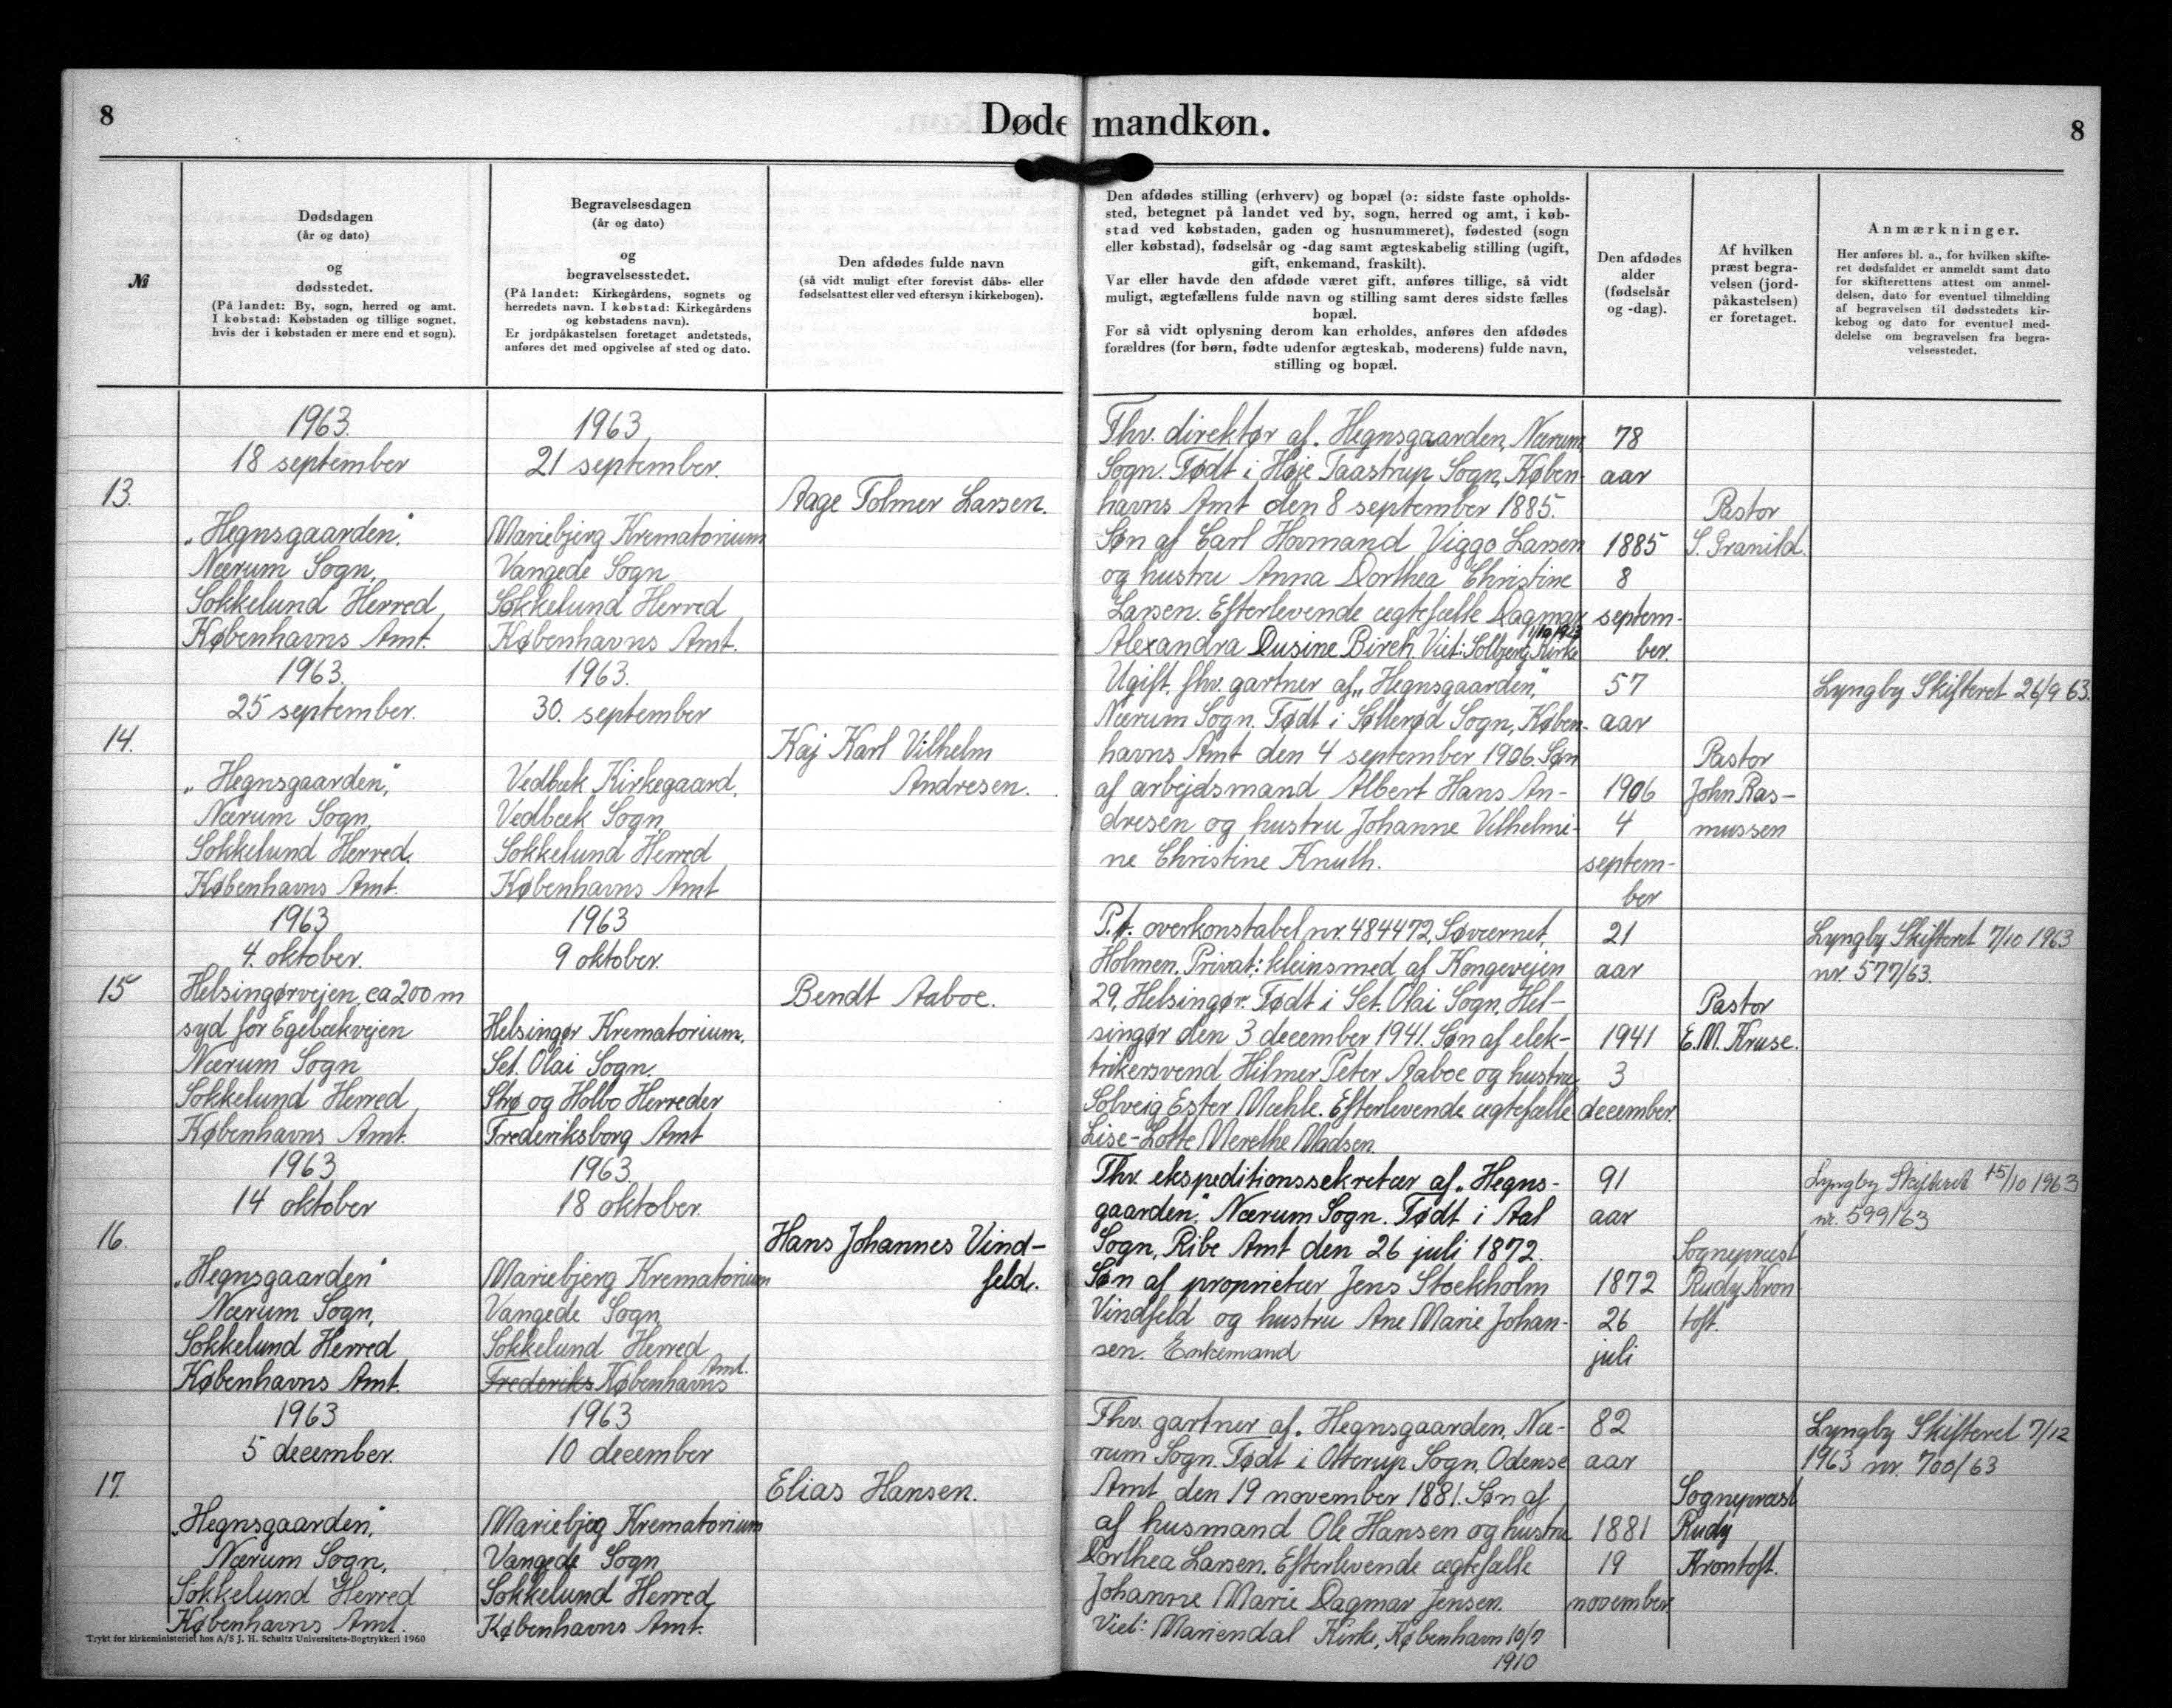 8
Døde mandkøn.
8
№
Dødsdagen
(år og dato)
og
dødsstedet.
(På landet: By, sogn, herred og amt.
I købstad: Købstaden og tillige sognet,
hvis der i købstaden er mere end et sogn).
Begravelsesdagen
(år og dato)
og
begravelsesstedet.
(På landet: Kirkegårdens, sognets og
herredets navn. I købstad: Kirkegårdens
og købstadens navn).
Er jordpåkastelsen foretaget andetsteds,
anføres det med opgivelse af sted og dato.
Den afdødes fulde navn
(så vidt muligt efter forevist dåbs- eller
fødselsattest eller ved eftersyn i kirkebogen).
Den afdødes stilling (erhverv) og bopæl (ɔ: sidste faste opholds-
sted, betegnet på landet ved by, sogn, herred og amt, i køb-
stad ved købstaden, gaden og husnummeret), fødested (sogn
eller købstad), fødselsår og -dag samt ægteskabelig stilling (ugift,
gift, enkemand, fraskilt).
Var eller havde den afdøde været gift, anføres tillige, så vidt
muligt, ægtefællens fulde navn og stilling samt deres sidste fælles
bopæl.
For så vidt oplysning derom kan erholdes, anføres den afdødes
forældres (for børn, fødte udenfor ægteskab, moderens) fulde navn,
stilling og bopæl.
Den afdødes
alder
(fødselsår
og -dag).
Af hvilken
præst begra-
velsen (jord-
påkastelsen)
er foretaget.
Anmærkninger.
Her anføres bl. a., for hvilken skifte-
ret dødsfaldet er anmeldt samt dato
for skifterettens attest om anmel-
delsen, dato for eventuel tilmelding
af begravelsen til dødsstedets kir-
kebog og dato for eventuel med-
delelse om begravelsen fra begra-
velsesstedet.
13.
1963.
18 september
„Hegnsgaarden“.
Nærum Sogn,
Sokkelund Herred
Københavns Amt.
1963
21 september.
Mariebjerg Krematorium
Vangede Sogn
Sokkelund Herred
Københavns Amt.
Aage Tolmer Larsen.
Fhv. direktør af „Hegnsgaarden, Nærum
Sogn. Født i Høje Taastrup Sogn, Køben-
havns Amt den 8 september 1885.
Søn af Carl Havmand Viggo Larsen
og hustru Anna Dorthea Christine
Larsen. Efterlevende ægtefælle Dagmar
Alexandra Dusine Birch. Viet: Solbjerg Kirke
78
aar
1885
8
septem-
ber.
Pastor
S. Granild.
14.
1963.
25 september.
„Hegnsgaarden“,
Nærum Sogn,
Sokkelund Herred,
Københavns Amt.
1963.
30. september
Vedbæk Kirkegaard,
Vedbæk Sogn
Sokkelund Herred
Københavns Amt
Kaj Karl Vilhelm
Andresen.
Ugift, fhv. gartner af „Hegnsgaarden“,
Nærum Sogn. Født i Søllerød Sogn, Køben-
havns Amt den 4 september 1906. Søn
af arbejdsmand Albert Hans An-
dresen og hustru Johanne Vilhelmi-
ne Christine Knuth.
57
aar
1906
4
septem-
ber
Pastor
John Ras-
mussen
Lyngby Skifteret 26/9 63.
15
1963
4. oktober.
Helsingørvejen, ca 200 m
syd for Egebækvejen
Nærum Sogn
Sokkelund Herred
Københavns Amt.
1963
9 oktober.
Helsingør Krematorium.
Sct. Olai Sogn.
Strø og Holbo Herreder
Frederiksborg Amt
Bendt Aaboe.
P.t. overkonstabel nr. 484472, Søværnet,
Holmen. Privat: kleinsmed af Kongevejen
29, Helsingør. Født i Sct. Olai Sogn, Hel-
singør den 3 december 1941. Søn af elek-
trikersvend Hilmer Peter Aaboe og hustru
Solveig Ester Mæhle. Efterlevende ægtefælle
Lise-Lotte Merethe Madsen.
21
aar
1941
3
december.
Pastor
E.M. Kruse.
Lyngby Skifteret 7/10 1963
nr. 577/63.
16.
1963
14 oktober
„Hegnsgaarden“
Nærum Sogn,
Sokkelund Herred
Københavns Amt.
1963.
18 oktober.
Mariebjerg Krematorium
Vangede Sogn
Sokkelund Herred
Frederiks Københavns Amt.
Hans Johannes Vind-
feld.
Fhv. ekspeditionssekretær af „Hegns-
gaarden“. Nærum Sogn. Født i Aal
Sogn, Ribe Amt den 26 juli 1872.
Søn af proprietær Jens Stockholm
Vindfeld og hustru Ane Marie Johan-
sen. Enkemand
91
aar
1872
26
juli
Sognepræst
Rudy Kron
toft.
Lyngby Skifteret 15/10 1963
nr. 599/63
17.
1963
5 december.
„Hegnsgaarden“.
Nærum Sogn,
Sokkelund Herred
Københavns Amt.
1963
10 december
Mariebjeg Krematorium
Vangede Sogn
Sokkelund Herred
Københavns Amt.
Elias Hansen.
Fhv. gartner af „Hegnsgaarden, Næ-
rum Sogn. Født i Otterup Sogn, Odense
Amt den 19 november 1881. Søn af
af husmand Ole Hansen og hustru
Dorthea Larsen. Efterlevende ægtefælle
Johanne Marie Dagmar Jensen.
Viet: Mariendal Kirke, København 10/7
1910
82
aar
1881
19
november.
Sognepræst
Rudy
Krontoft.
Lyngby Skifteret 7/12
1963 nr. 700/63
Trykt for kirkeministeriet hos A/S J. H. Schultz Universitets-Bogtrykkeri 1960